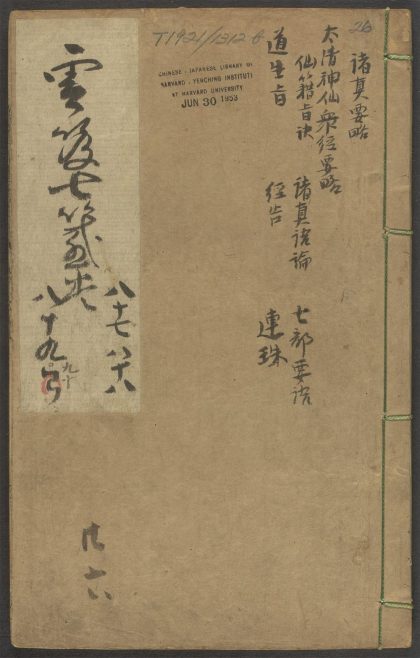 26
諸真要略
太清神仙衆經要略
仙籍旨訣 諸真語論 七部要語
道生旨 經告 連珠
T1921/1312 b
CHINESE-JAPANESE LIBRARY OF
HARVARD-YENCHING INSTITUTE
AT HARVARD UNIVERSITY
JUN 30 1953
雲笈七籤
八十七 八十八
八十九
九十
六